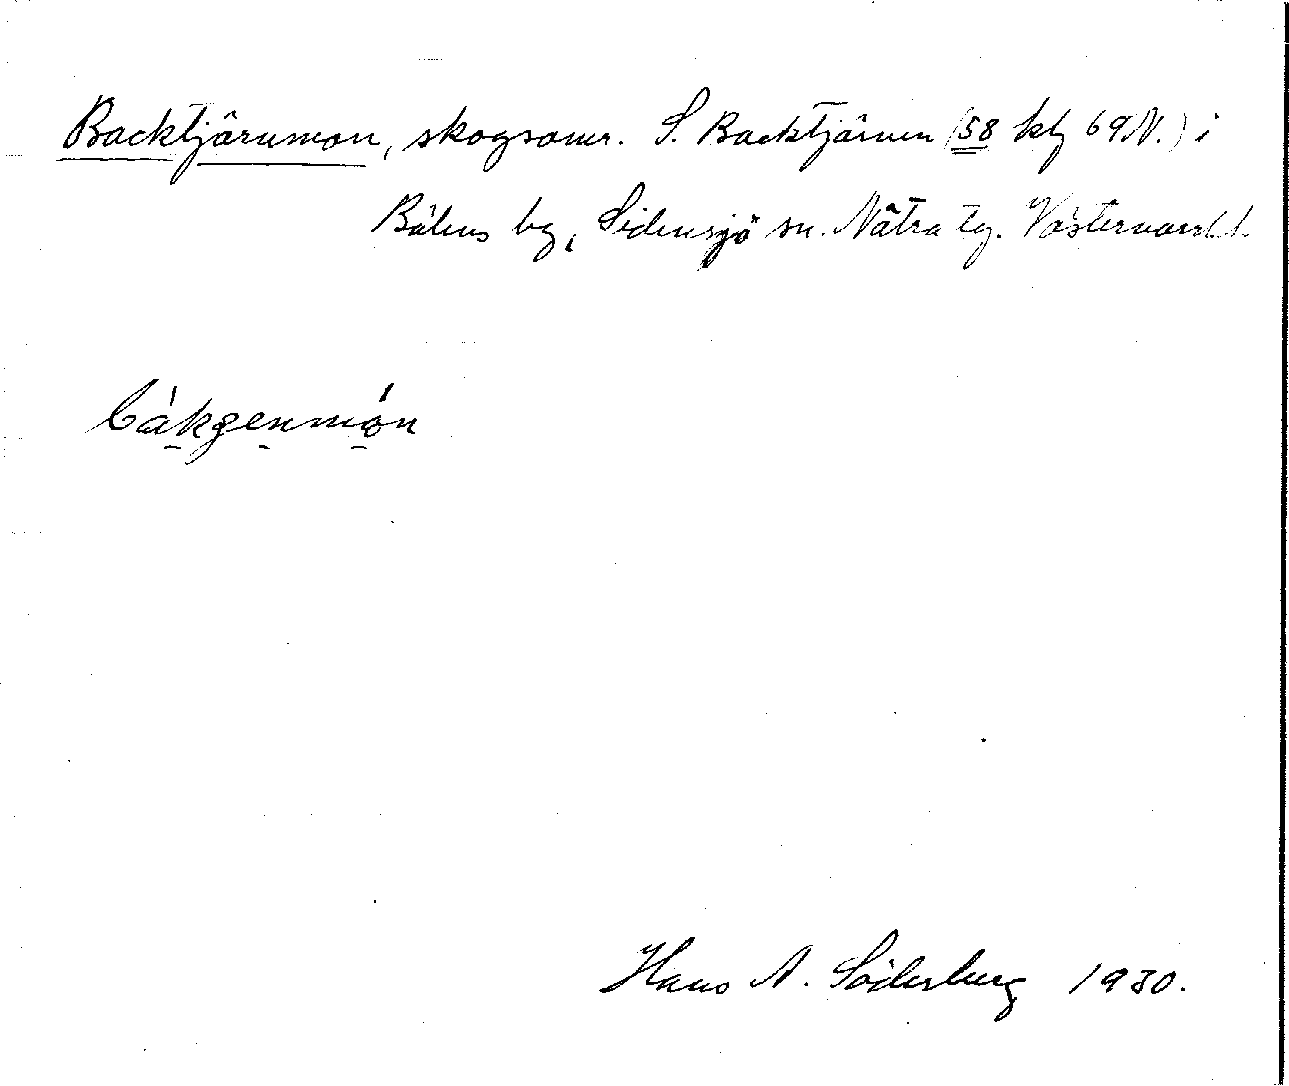 Backtjärnmon, skogsomr. S. Backtjärnen (58 kbl 69N.) i
Bäléns by, Sidensjö sn. Nätra tg. Västernorrl. l.
bákgenmón
Hans A. Söderberg 1930.